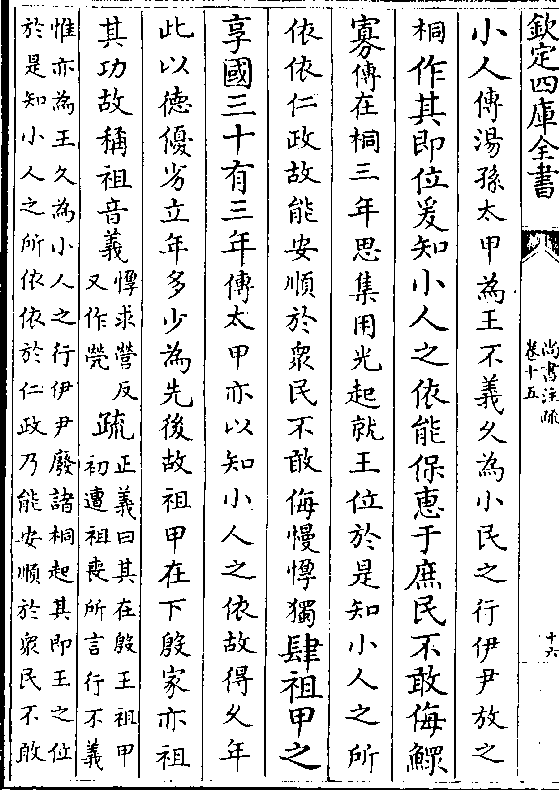 欽定四庫全書
尚書注疏
卷十五
十六
小人傳湯孫太甲為王不義久為小民之行伊尹放之
桐作其即位爰知小人之依能保惠于庶民不敢侮鰥
寡傳在桐三年思集用光起就王位於是知小人之所
依依仁政故能安順於衆民不敢侮慢惸獨肆祖甲之
享國三十有三年傳太甲亦以知小人之依故得久年
此以德優劣立年多少為先後故祖甲在下殷家亦祖
其功故稱祖音義
惸求營反
又作煢
疏
正義曰其在殷王祖甲
初遭祖喪所言行不義
惟亦為王久為小人之行伊尹廢諸桐起其即王之位
於是知小人之所依依於仁政乃能安順於衆民不敢